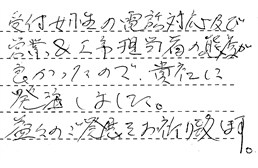 受付女性の電話対応及び
営業&工事担当者の態度が
良かったので、貴社に
発注しました。
益々のご発展をお祈り致します。